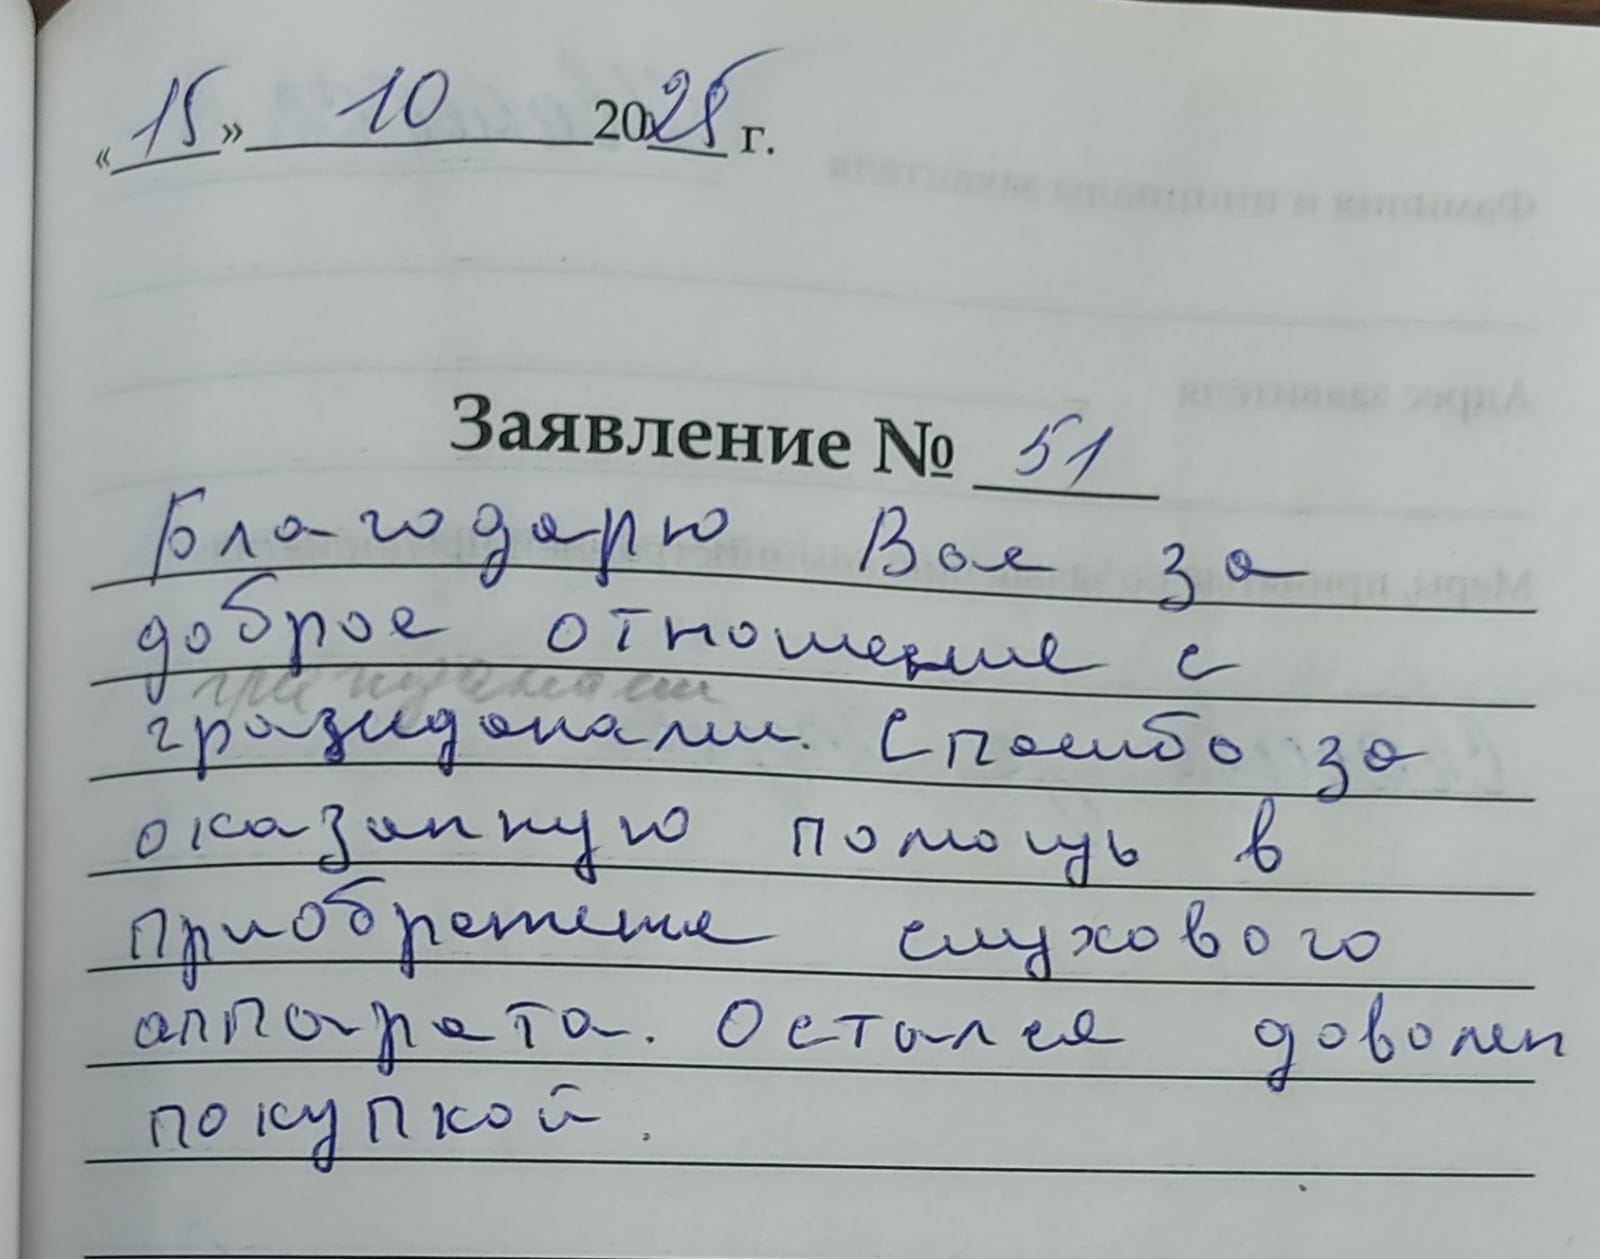 «15» 10 2025 г.
Заявление № 51
Благодарю Вас за
доброе отношение с
гражданами. Спасибо за
оказанную помощь в
приобретение слухового
аппарата. Остался доволен
покупкой.